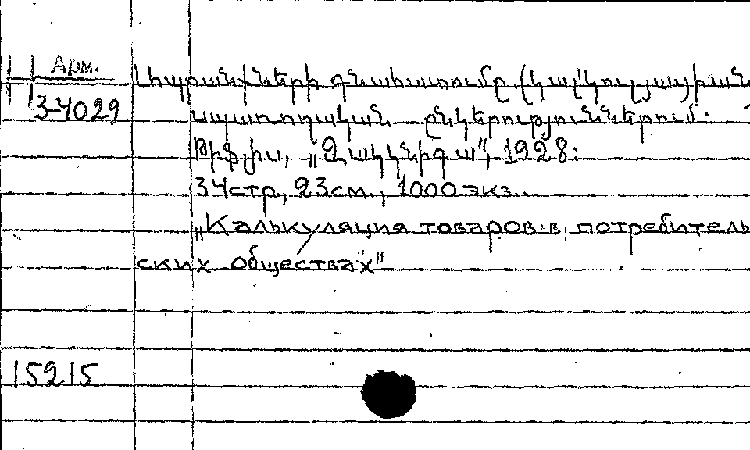 Арм.
3-4029
գնահատումը (կալկուլյացիան
սպառողական ընկերություններում.
Թիֆլիս, „Զակկնիգա", 1928:
34стр., 23см., 1000 экз.
„Калькуляция товаров в потребитель
ских обществах"
15215